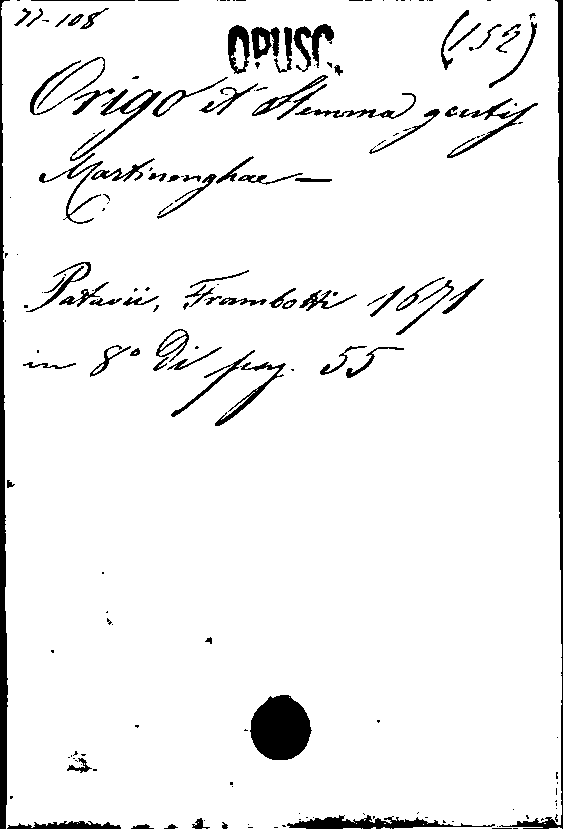 77-108
OPUSC. (152)
Origo et Stemma gentis
Martinenghae —
Patavii, Frambotti 1671
in 8° di pag. 55